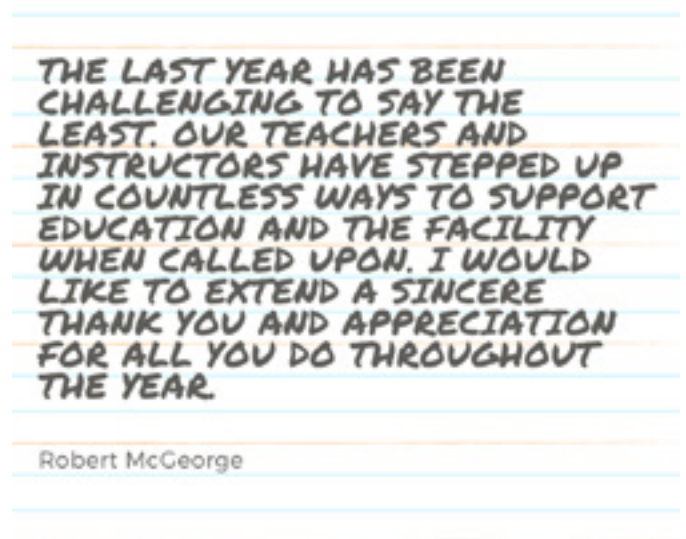 THE LAST YEAR HAS BEEN
CHALLENGING TO SAY THE
LEAST. OUR TEACHERS AND
INSTRUCTORS HAVE STEPPED UP
IN COUNTLESS WAYS TO SUPPORT
EDUCATION AND THE FACILITY
WHEN CALLED UPON. I WOULD
LIKE TO EXTEND A SINCERE
THANK YOU AND APPRECIATION
FOR ALL YOU DO THROUGHOUT
THE YEAR.
Robert McGeorge